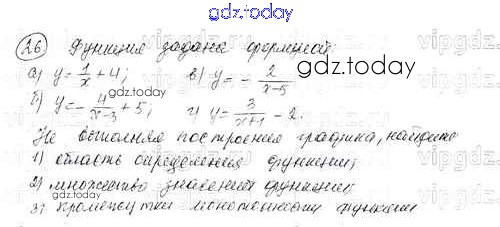 gdz.today
26 Функция задана формулой:
а) y = 1/x + 4; в) y = - 2/(x-5)
gdz.today
б) y = - 4/(x-3) + 5; г) y = 3/(x+1) - 2.
Не выполняя построения графика, найдите
1) область определения функции;
2) множество значений функции
3) промежутки монотонности функции